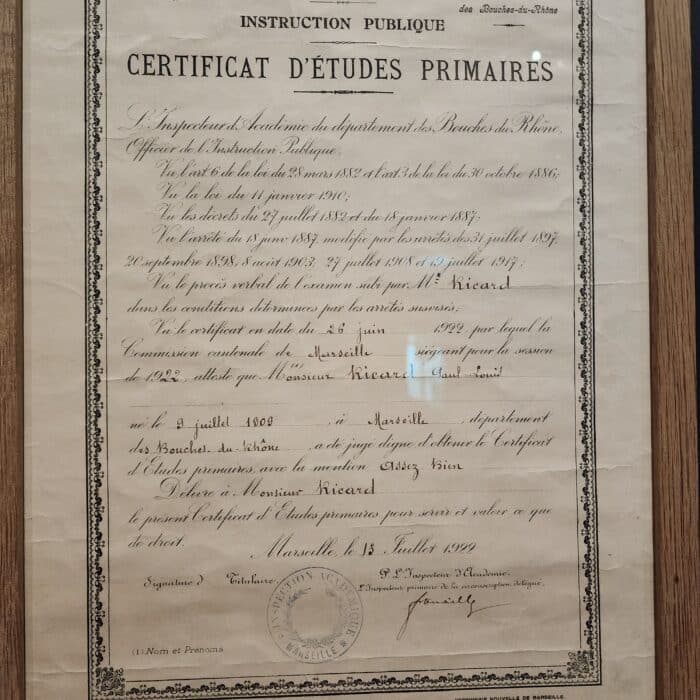 des Bouches-du-Rhône
INSTRUCTION PUBLIQUE
CERTIFICAT D'ÉTUDES PRIMAIRES
L'Inspecteur d'Académie du département des Bouches du Rhône,
Officier de l'Instruction Publique,
Vu l'art. 6 de la loi du 28 mars 1882 et l'art. 3 de la loi du 30 octobre 1886;
Vu la loi du 11 janvier 1910;
Vu les décrets du 27 juillet 1882 et du 18 janvier 1887;
Vu l'arrêté du 18 janv. 1887, modifié par les arrêtés des 31 juillet 1897,
20 septembre 1898, 8 août 1903, 27 juillet 1908 et 19 juillet 1917;
Vu le procès verbal de l'examen subi par Mr Ricard
dans les conditions déterminées par les arrêtés susvisés;
Vu le certificat en date du 26 juin 1922, par lequel la
Commission cantonale de Marseille siégeant pour la session
de 1922, atteste que Monsieur (1) Ricard Paul Louis
né le 9 juillet 1909, à Marseille, département
des Bouches-du-Rhône, a été jugé digne d'obtenir le Certificat
d'Études primaires, avec la mention Assez Bien
Délivre à Monsieur Ricard
le présent Certificat d'Études primaires pour servir et valoir ce que
de droit.
Marseille, le 13 Juillet 1922
Signature du Titulaire,
P. L'Inspecteur d'Académie.
L'Inspecteur primaire de la circonscription délégué,
INSPECTION ACADÉMIQUE
MARSEILLE
(1) Nom et Prénoms
IMPRIMERIE NOUVELLE DE MARSEILLE